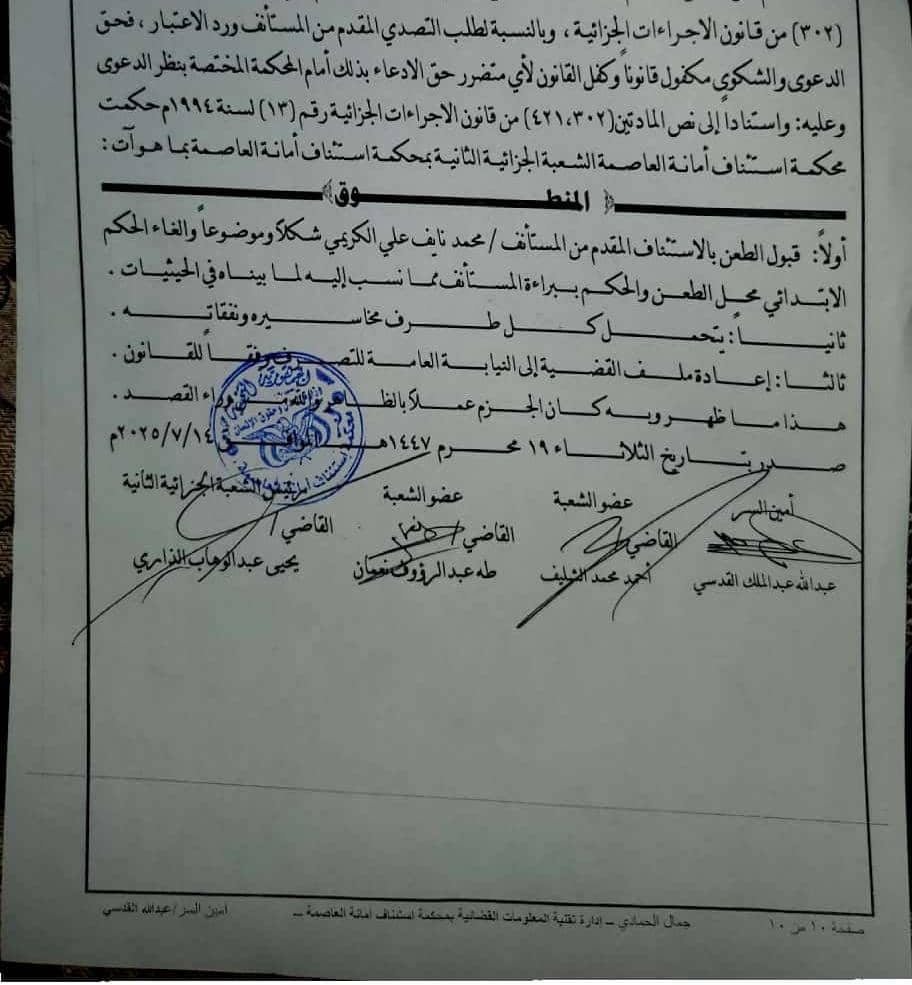 (٣٠٢) من قانون الاجراءات الجزائية ، وبالنسبة لطلب التصدي المقدم من المستأنف ورد الاعتبار ، فحق
الدعوى والشكوى مكفول قانوناً وكفل القانون لأي متضرر حق الادعاء بذلك أمام المحكمة المختصة بنظر الدعوى
وعليه: واستناداً إلى نص المادتين (٤٢١،٣٠٢) من قانون الاجراءات الجزائية رقم (١٣) لسنة ١٩٩٤م حكمت
محكمة استئناف أمانة العاصمة الشعبة الجزائية الثانية بمحكمة استئناف أمانة العاصمة بما هوآت :
المنطــــوق
أولاً: قبول الطعن بالاستئناف المقدم من المستأنف / محمد نايف علي الكريمي شكلاً وموضوعاً والغاء الحكم
الابتدائي محل الطعن والحكم ببراءة المستأنف مما نسب إليه لما بيناه في الحيثيات .
ثانياً: يتحمل كل طرف مخاسيره ونفقاته .
ثالثا: إعادة ملف القضية إلى النيابة العامة للتصرف وفقاً للقانون .
هذا ما ظهر وبه كان الجزم عملاً بالظاهر والله من وراء القصد .
صدر بتاريخ الثلاثاء ١٩ محرم ١٤٤٧هـ الموافق ٢٠٢٥/٧/١٤م
أمين السر عضو الشعبة عضو الشعبة رئيس الشعبة الجزائية الثانية
القاضي/ القاضي/ القاضي/
عبدالله عبدالملك القدسي أحمد محمد الشليف طه عبدالرؤوف نعمان يحيى عبدالوهاب الذاري
صفحة ١٠ من ١٠ جمال الحمادي – إدارة تقنية المعلومات القضائية بمحكمة استئناف أمانة العاصمة – أمين السر/عبدالله القدسي